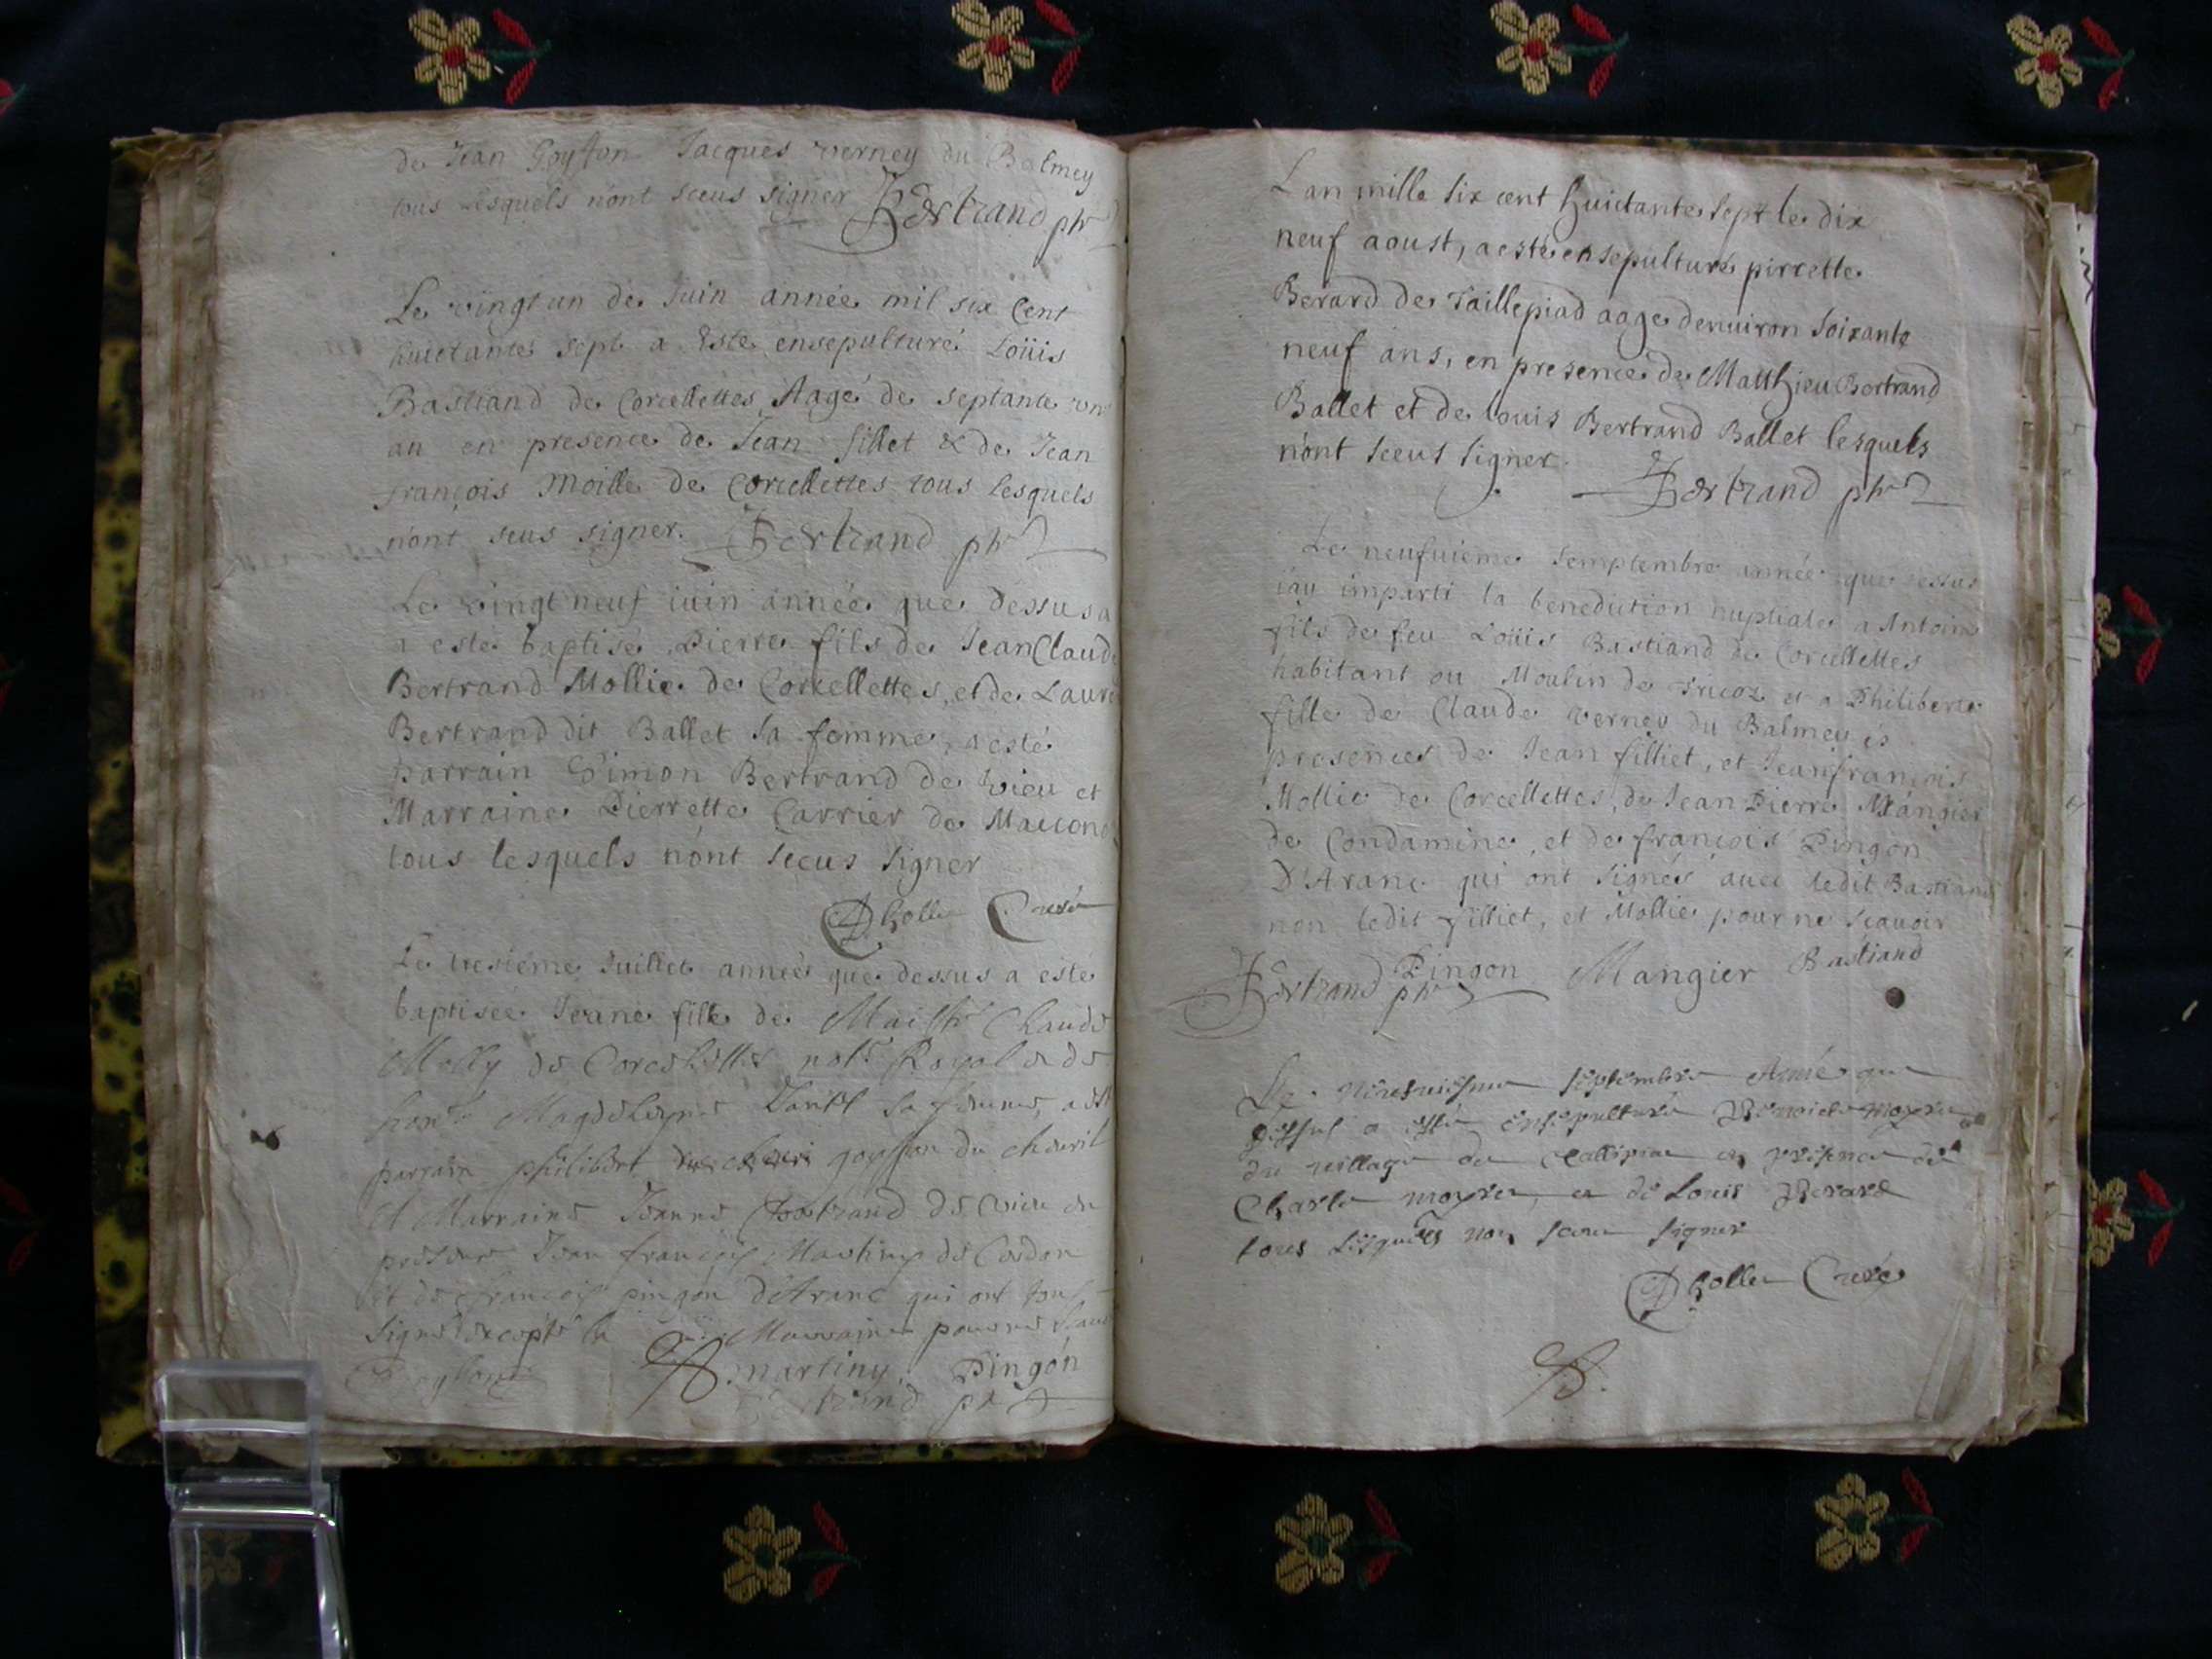 de Jean Goyffon Jacques verney du Balmey
tous lesquels n'ont sceus signer Bertrand pbr
Le vingt un de Juin année mil six Cent
huictante sept a Esté ensepulturé Loüis
Bastiand de Corcellettes Aagé de septante un
an en presence de Jean fillet & de Jean
françois Moille de Corcellettes tous lesquels
n'ont sceus signer. Bertrand pbr
Le vingt neuf iuin année que dessus a
a esté baptisé Pierre fils de Jean Claude
Bertrand Mollie de Corcellettes, et de Laure
Bertrand dit Ballet sa femme, a esté
parrain Simon Bertrand de vieu et
Marraine Pierrette Carrier de Macconod
tous lesquels n'ont sceus signer
Dholle Curé
Le tresième Juillet année que dessus a esté
baptisée Jeane fille de Maistre Claude
Molly de Corcellettes not.re Royal & de
Magdeleyne sa femme, a esté
parrain philibert goyffon du
et Marraine Jeanne Bertrand de vieu en
presence Jean françois Martiny de Cerdon
et de françois pingon d'Aranc qui ont tous
signé excepté la Marraine pour ne scavoir
Goyffon Martiny Pingon
Bertrand pbr
L'an mille six cent huictante sept le dix
neuf aoust, a esté ensepulturé pierette
Berard de Taillepiad aage denuiron soixante
neuf ans, en presence de Matthieu Bertrand
Ballet et de louis Bertrand Ballet lesquels
n'ont sceus signer.
Bertrand pbr
Le neufuieme semptembre année que dessus
i'ay imparti la benediction nuptiale a Antoine
fils de feu Loüis Bastiand de Corcellettes
habitant ou Moulin de et a Philiberte
fille de Claude verney du Balmey és
presences de Jean filliet, et Jean françois
Mollie de Corcellettes, de Jean Pierre Mangier
de Condamine, et de françois Pingon
D'Aranc qui ont signés auec ledit Bastiand
non ledit filliet, et Mollie pour ne scauoir
Bertrand pbr Pingon Mangier Bastiand
Le septembre Année que
dessus a esté ensepulturé moyret
du village de en presence de
Charle moyret, et de Louis Berard
tous lesquels non sceu signer
Dholle Curé